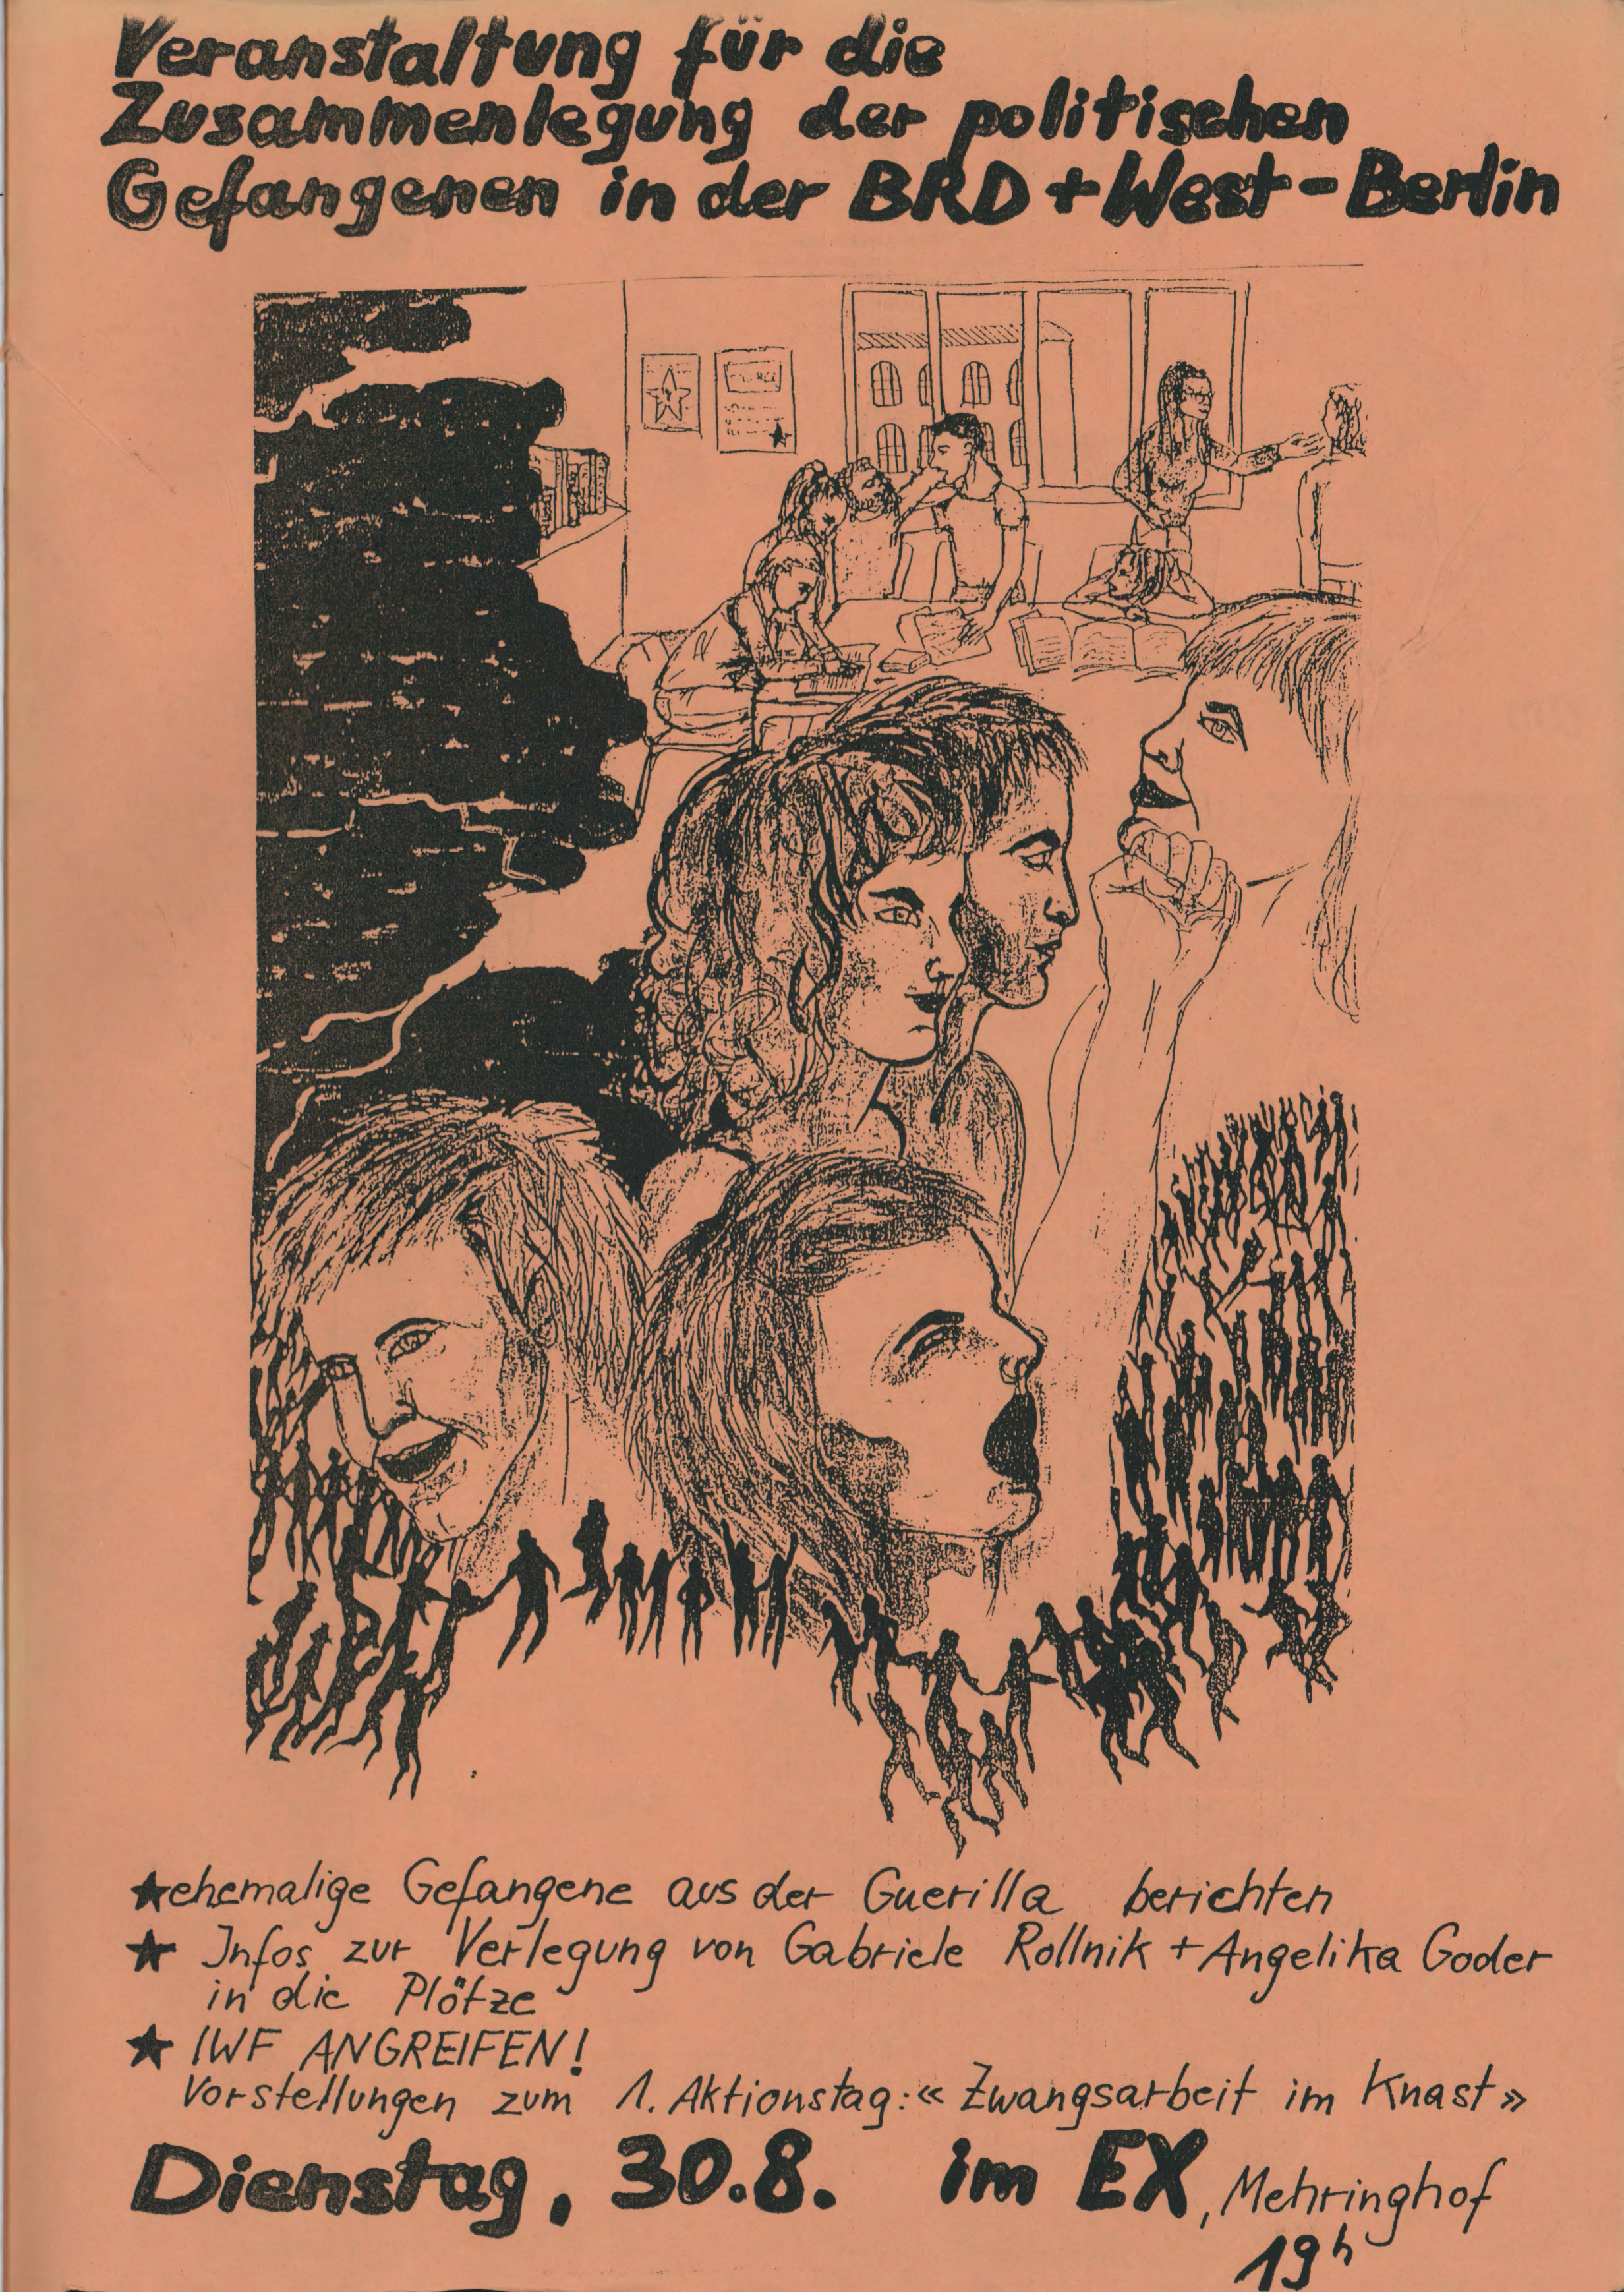 Veranstaltung für die
Zusammenlegung der politischen
Gefangenen in der BRD + West-Berlin
★ ehemalige Gefangene aus der Guerilla berichten
★ Infos zur Verlegung von Gabriele Rollnik + Angelika Goder
in die Plötze
★ IWF ANGREIFEN!
Vorstellungen zum 1. Aktionstag: «Zwangsarbeit im Knast»
Dienstag, 30.8. im EX, Mehringhof
19h